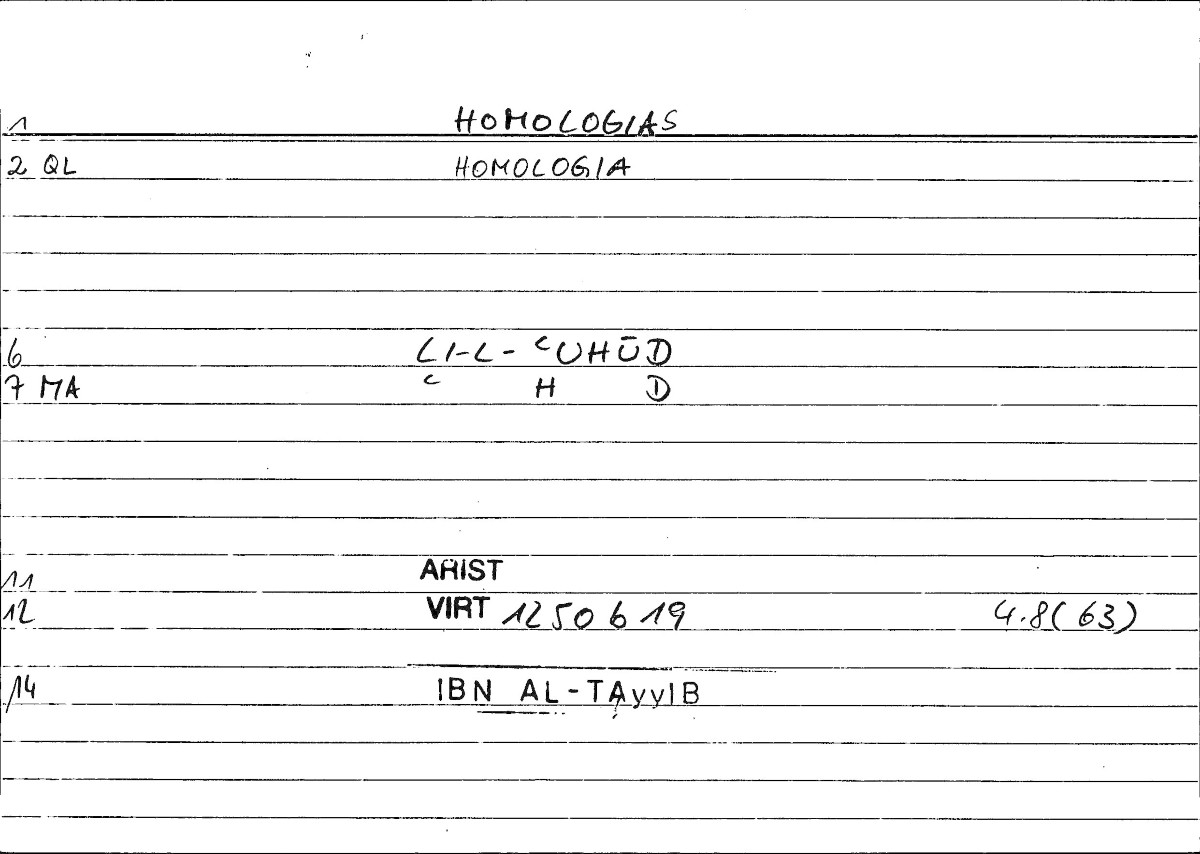 1 HOMOLOGIAS
2 QL HOMOLOGIA
6 LI-L-ʿUHŪD
7 MA ʿ H D
11 ARIST
12 VIRT 1250b19 4.8(63)
14 IBN AL-ṬAyyIB